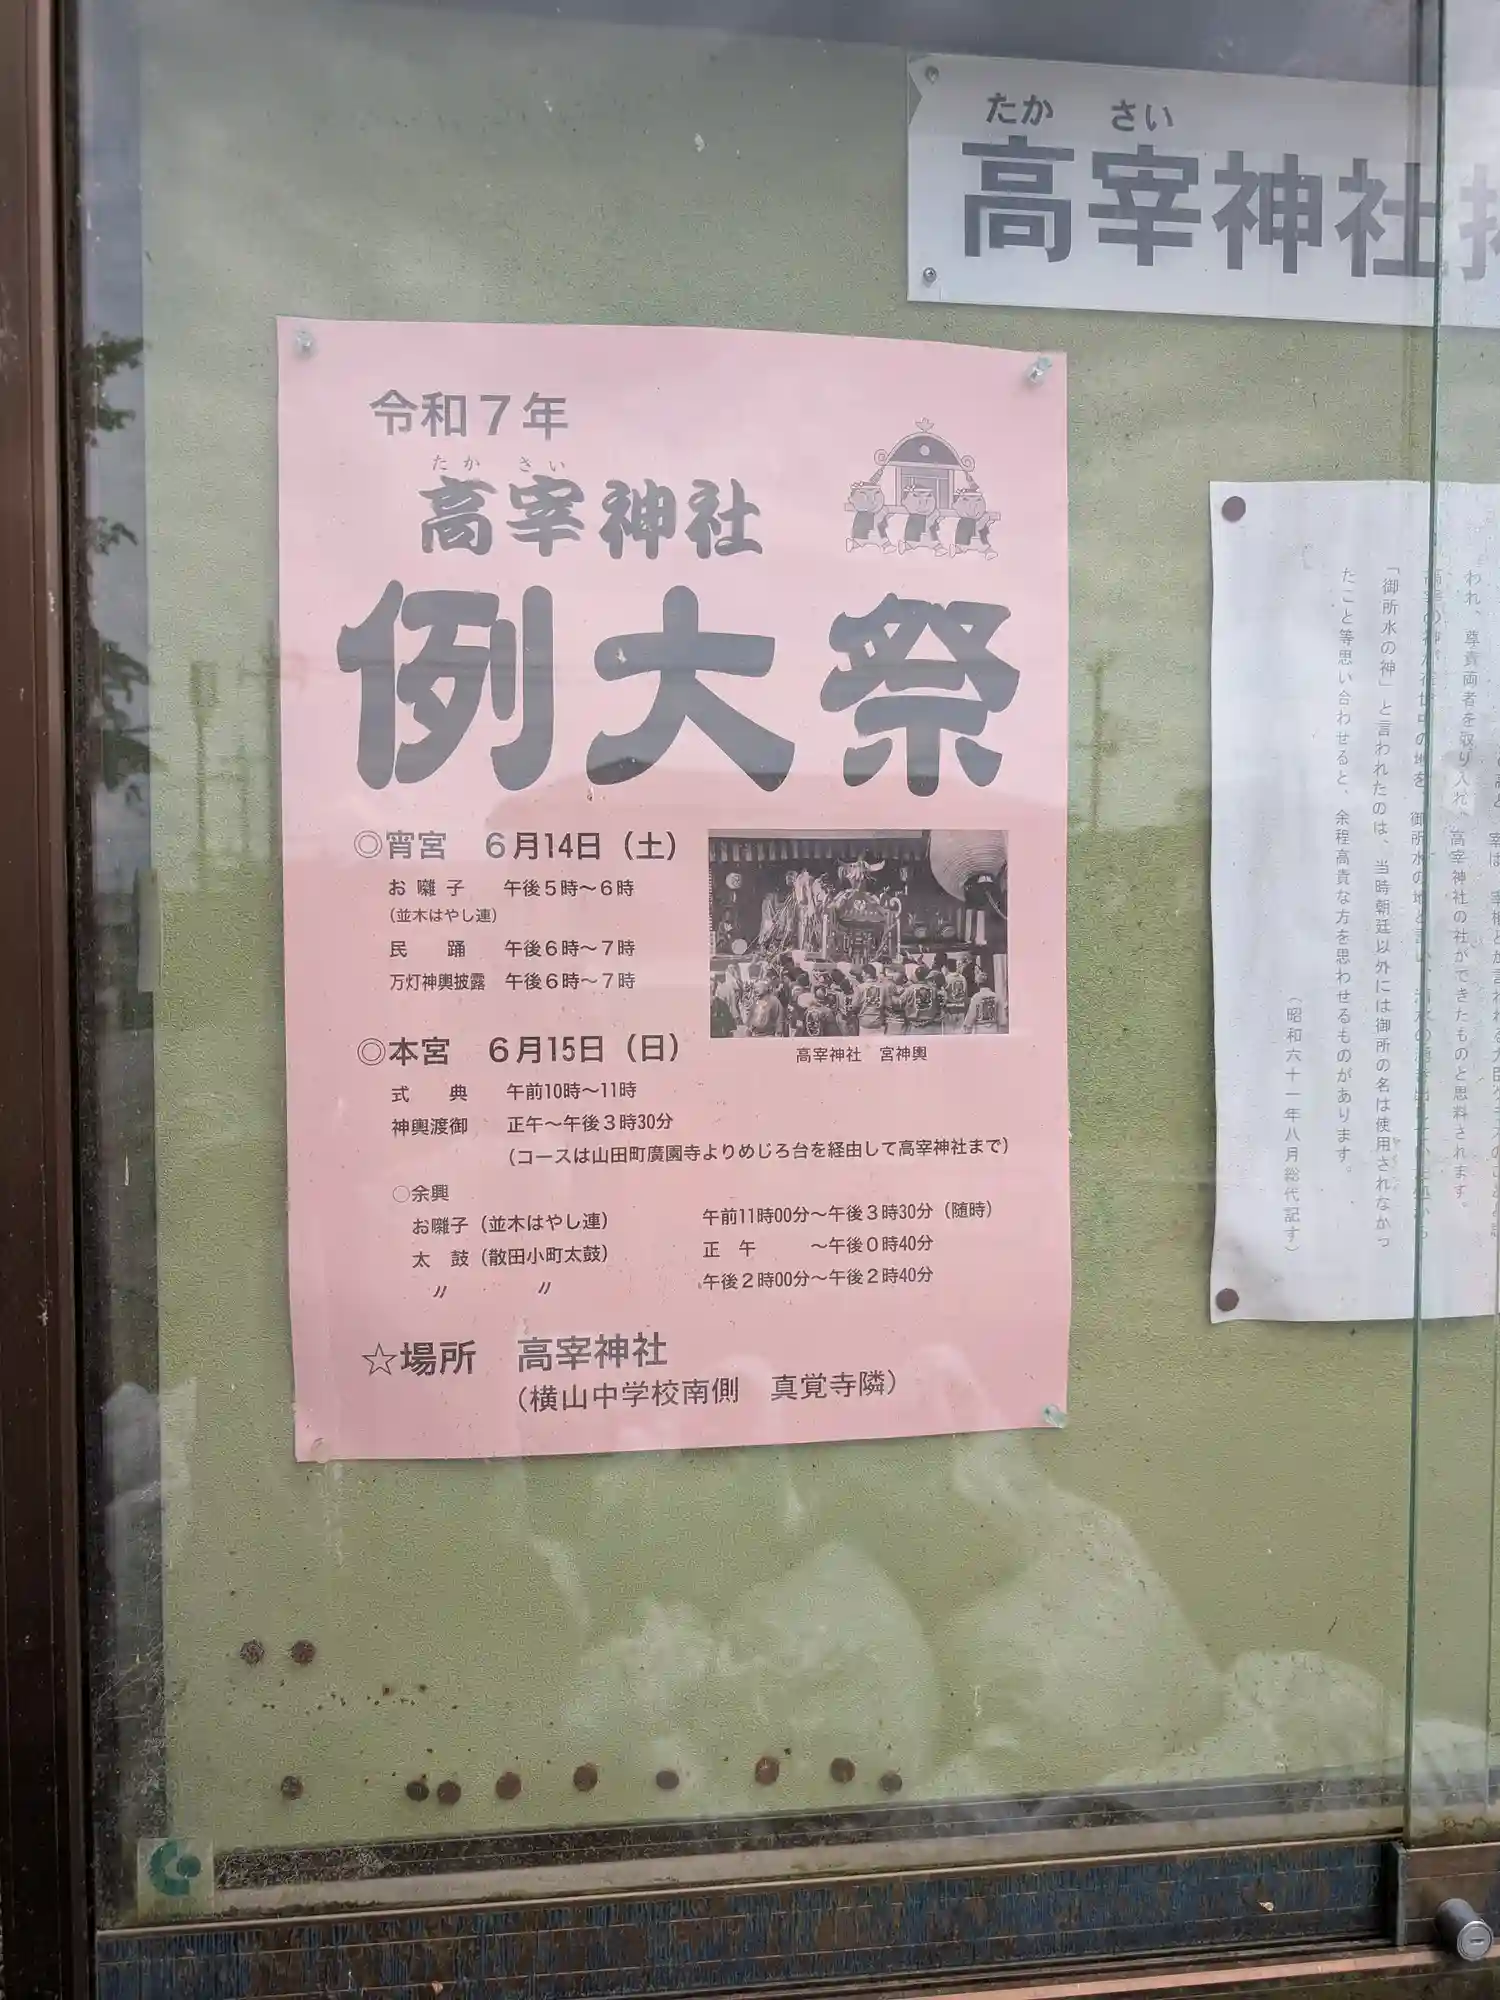 たか さい
高宰神社
令和７年
たか さい
高宰神社
例大祭
◎宵宮 ６月14日（土）
お囃子 午後５時～６時
（並木はやし連）
民 踊 午後６時～７時
万灯神輿披露 午後６時～７時
高宰神社 宮神輿
◎本宮 ６月15日（日）
式 典 午前10時～11時
神輿渡御 正午～午後３時30分
（コースは山田町廣園寺よりめじろ台を経由して高宰神社まで）
○余興
お囃子（並木はやし連） 午前11時00分～午後３時30分（随時）
太 鼓（散田小町太鼓） 正 午 ～午後０時40分
〃 〃 午後２時00分～午後２時40分
☆場所 高宰神社
（横山中学校南側 真覚寺隣）
われ、尊貴両者を取り入れ、高宰神社の社ができたものと思料されます。
「御所水の神」と言われたのは、当時朝廷以外には御所の名は使用されなかっ
たこと等思い合わせると、余程高貴な方を思わせるものがあります。
（昭和六十一年八月総代記す）